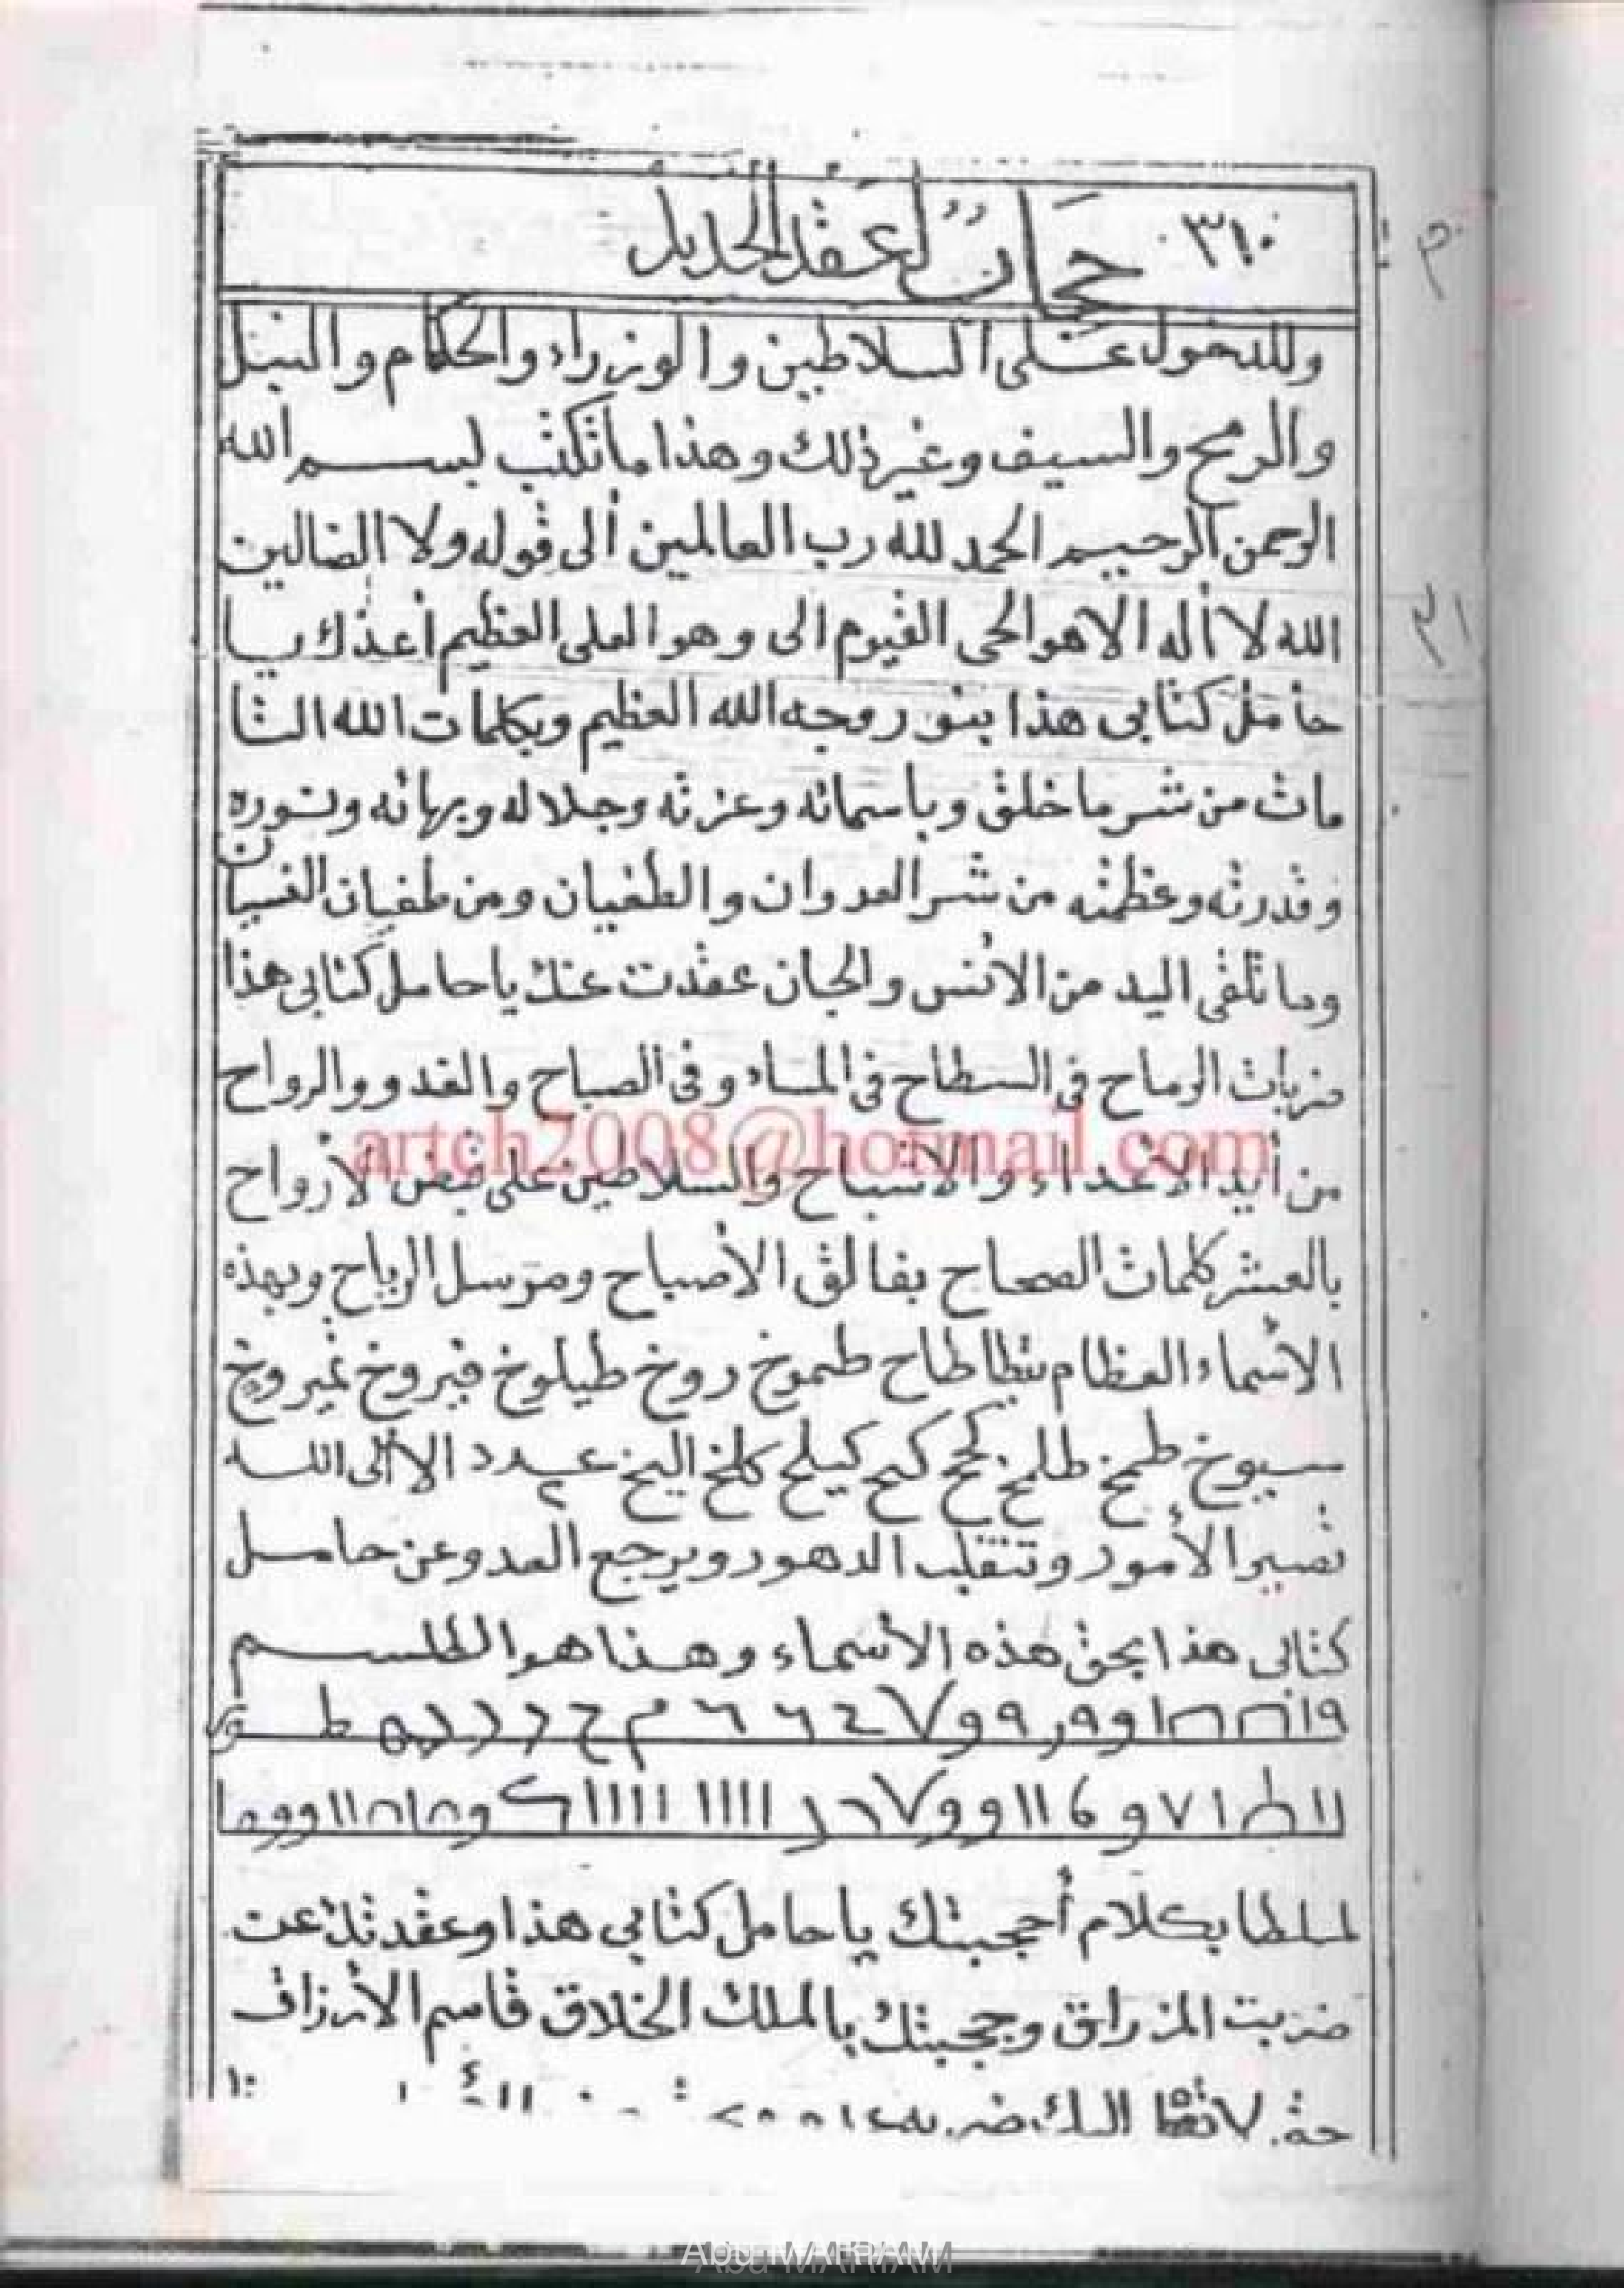 ٣١٠ حجاب لعقد الحديد
وللدخول على السلاطين والوزراء والحكام والنبل
والرمح والسيف وغير ذلك وهذا ما تكتب بسم الله
الرحمن الرحيم الحمد لله رب العالمين ألى قوله ولا الضالين
الله لا أله الا هو الحى القيوم الى وهو العلى العظيم أعذك يا
حامل كتابى هذا بنور وجه الله العظيم وبكلمات الله التا
مات من شر ما خلق وباسمائه وعزته وجلاله وبهائه ونوره
وقدرته وعظمته من شر العدوان والطغيان ومن طغيان
وما تلقى اليد من الانس والجان عقدت عنك يا حامل كتابى هذا
ضربات الرماح فى السطاح فى المساء وفى الصباح والغدو والرواح
من أيد الأعداء والاشباح والسلاطين على قبض الأرواح
بالعشر كلمات الصحاح بفالق الأصباح ومرسل الرياح وبهذه
الاسماء العظام طاح طموخ روخ طيلوخ فيروخ نميروخ
سيوخ طمخ طلمخ كجح كيح كيلح كلخ اليخ عدد الا ألى الله
تصير الأمور وتنقلب الدهور ويرجع العدو عن حامل
كتابى هذا بحق هذه الأسماء وهذا هو الطلسم
بكلام أحجبتك يا حامل كتابي هذا وعقدتك عن
ضربت المزراق وحجبتك بالملك الخلاق قاسم الأرزاق
artch2008@hotmail.com
Abu MARIAM